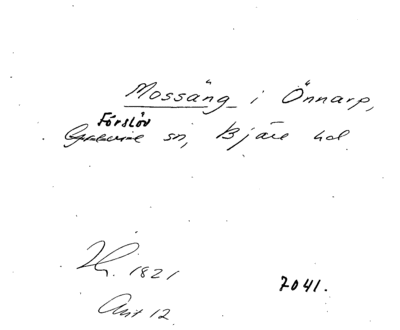 Mossäng i Önnarp,
Förslöv
sn, Bjäre hd
1821
7041.
Avt 12